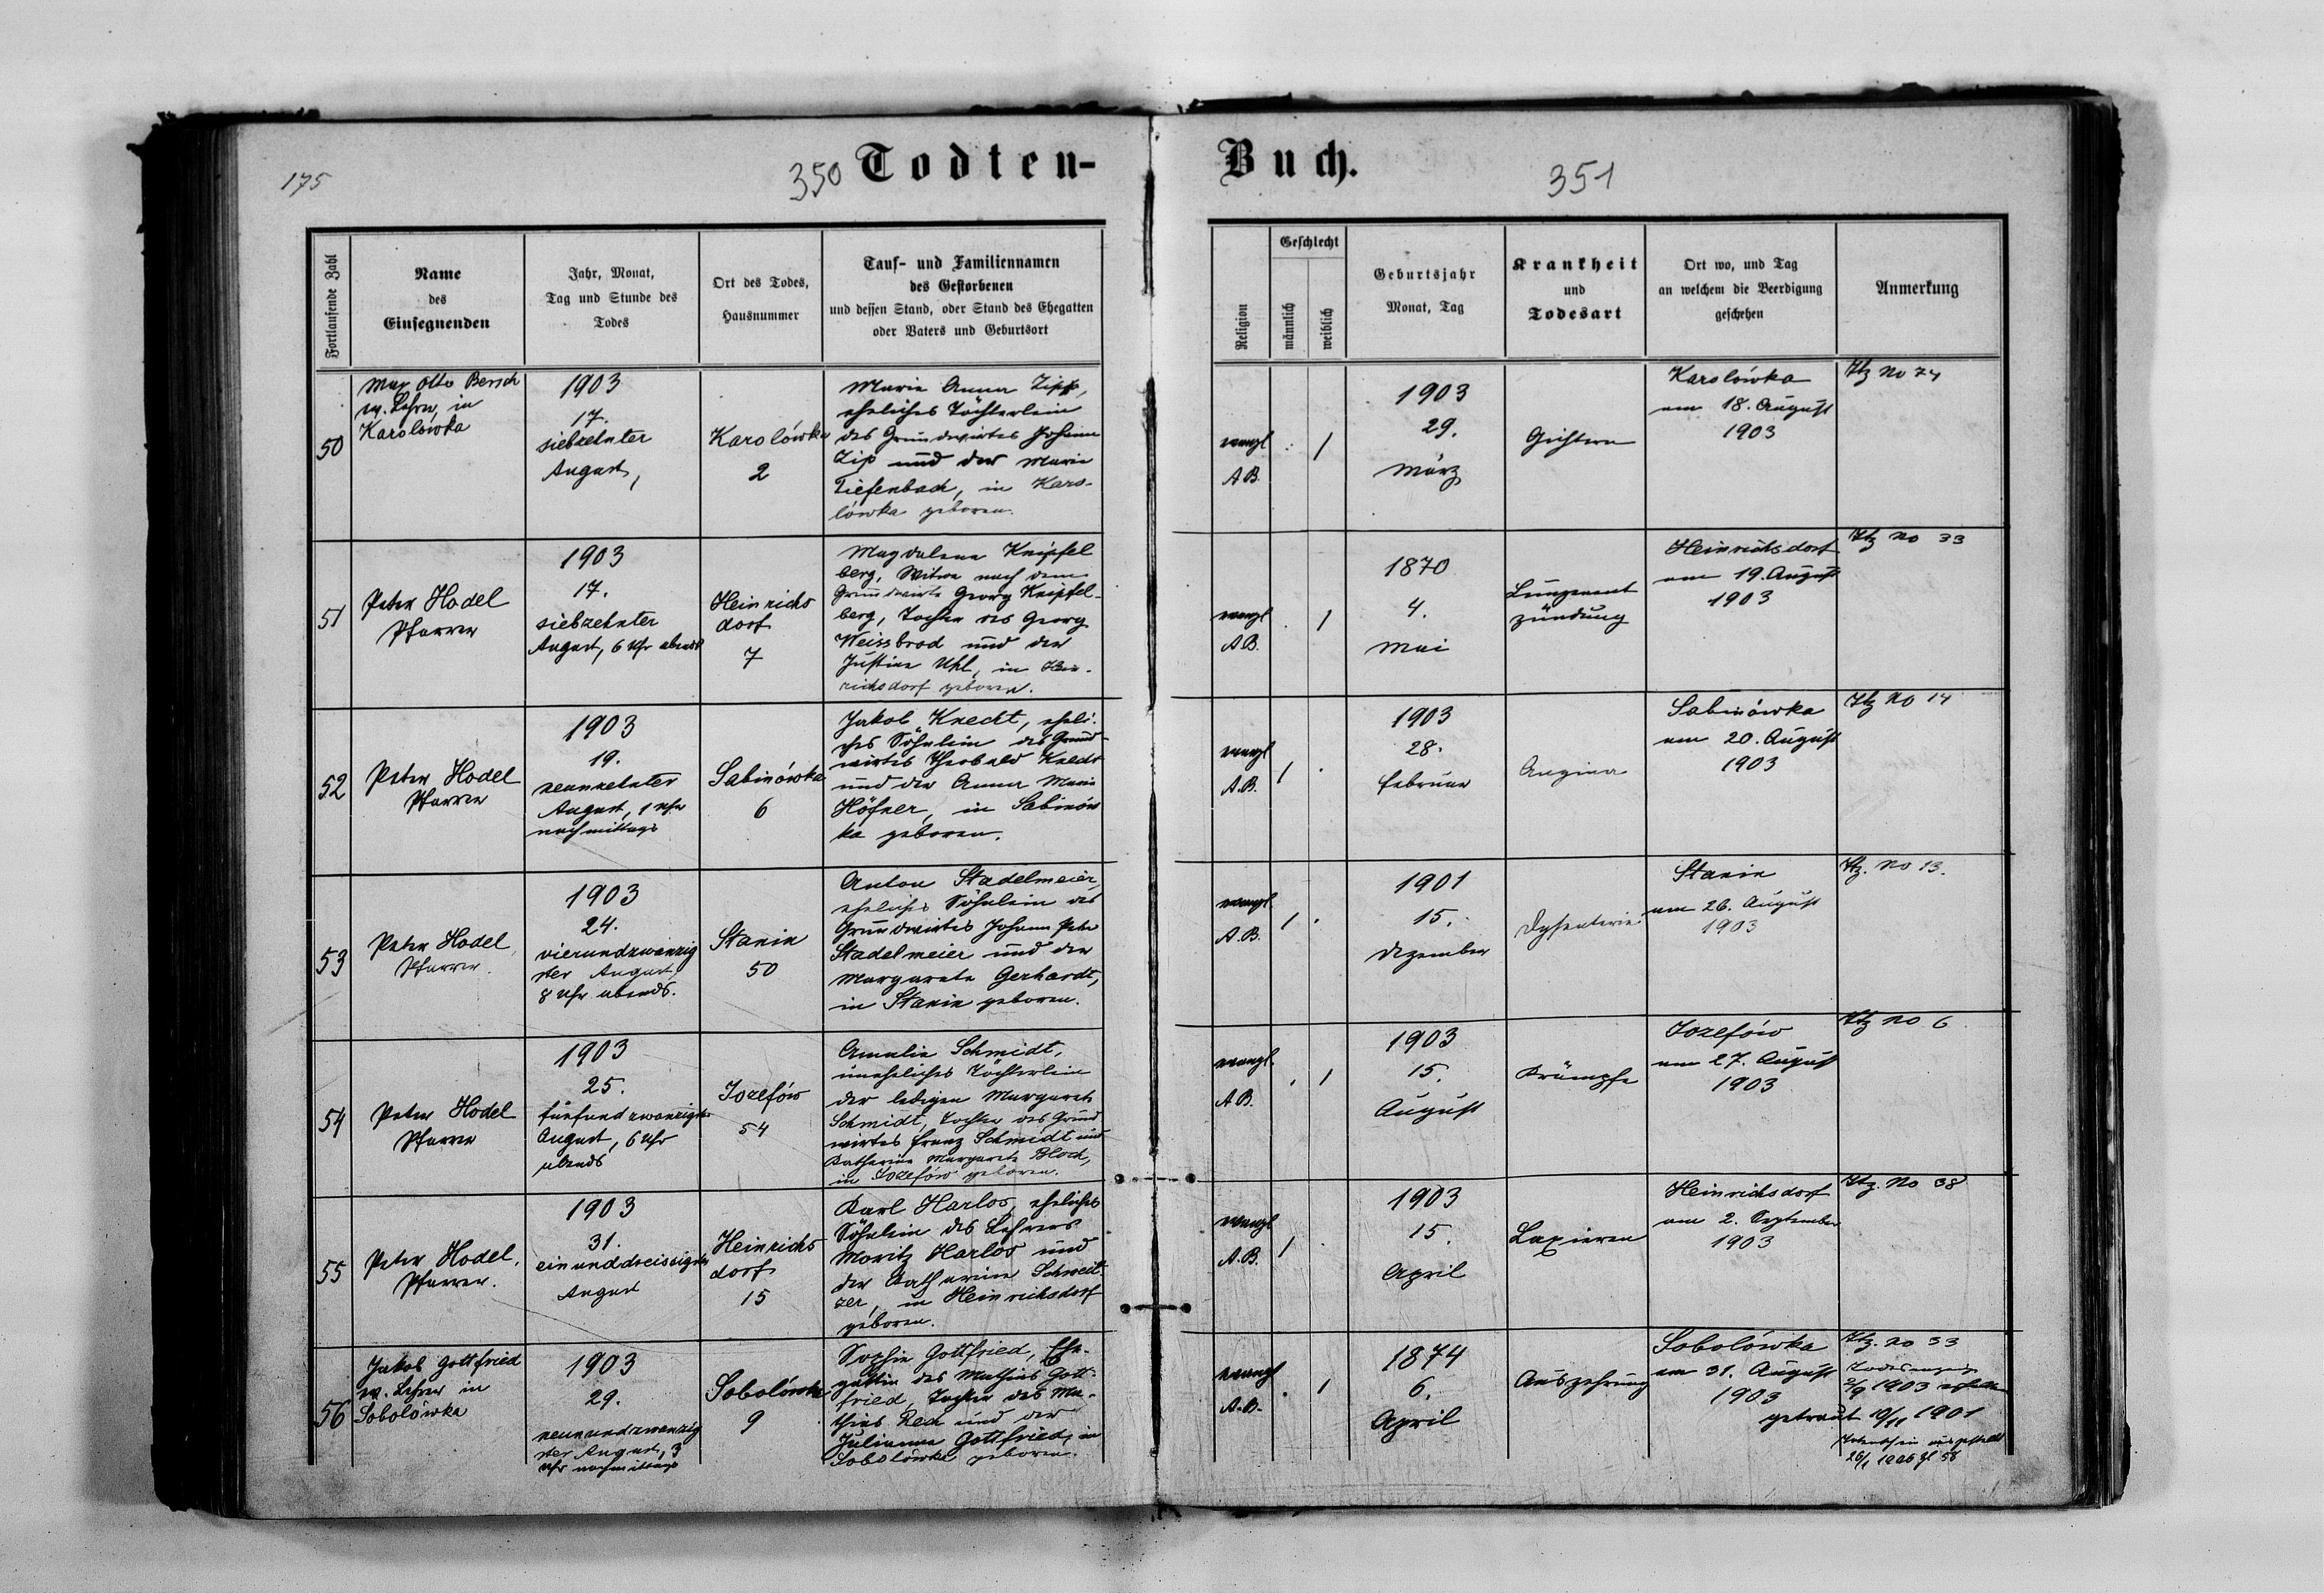 175
350 Todten-
Buch. 351
Fortlaufende Zahl
Name
des
Einsegnenden
Jahr, Monat,
Tag und Stunde des
Todes
Ort des Todes,
Hausnummer
Tauf- und Familiennamen
des Gestorbenen
und dessen Stand, oder Stand des Ehegatten
oder Vaters und Geburtsort
Religion
Geschlecht
männlich
weiblich
Geburtsjahr
Monat, Tag
Krankheit
und
Todesart
Ort wo, und Tag
an welchem die Beerdigung
geschehen
Anmerkung
50
Max Otto Bersch
ev. Lehrer, in
Karolówka
1903
17.
siebzehnter
August,
Karolówka
2
Marie Anna Zipp,
eheliches Töchterlein
des Grundwirtes Johann
Zip und der Marie
Tiefenbach, in Karo-
lówka geboren.
evangl
A.B.
/
1903
29.
März
Gichtern
Karolówka
am 18. August
1903
Ztz No 74
51
Peter Hodel
Pfarrer
1903
17.
siebzehnter
August, 6 Uhr abends
Heinrichs
dorf
7
Magdalena Knipfel
berg, Witwe nach dem
Grundwirte Georg Knipfel-
berg, Tochter des Georg
Weissbrod und der
Justine Uhl, in Hein-
richsdorf geboren.
evangl
A.B.
/
1870
4.
Mai
Lungenent
zündung
Heinrichsdorf
am 19. August
1903
Ztz No 33
52
Peter Hodel
Pfarrer
1903
19.
neunzehnter
August, 1 Uhr
nachmittags
Sabinówka
6
Jakob Knecht, eheli-
ches Söhnlein des Grund-
wirtes Theobald Knecht
und der Anna Maria
Höfner, in Sabinów
ka geboren.
evangl
A.B.
/
1903
28.
Februar
Angina
Sabinówka
am 20. August
1903
Ztz No 14
53
Peter Hodel,
Pfarrer.
1903
24.
vierundzwanzig
ster August,
8 Uhr abends.
Stanin
50
Anton Stadelmeier,
eheliches Söhnlein des
Grundwirtes Johann Peter
Stadelmeier und der
Margarete Gerhardt,
in Stanin geboren.
evangl
A.B.
/
1901
15.
Dezember
Dysenterie
Stanin
am 26. August
1903
Ztz. No 13.
54
Peter Hodel
Pfarrer
1903
25.
fünfundzwanzigster
August, 6 Uhr
abends
Jozefów
54
Amalie Schmidt,
uneheliches Töchterlein
der ledigen Margarete
Schmidt, Tochter des Grund
wirtes Franz Schmidt und
Katharina Margarete Bloch,
in Jozefów geboren.
evangl.
A.B.
/
1903
15.
August
Krämpfe
Jozefów
am 27. August
1903
Ztz No 6
55
Peter Hodel,
Pfarrer.
1903
31.
einunddreissigster
August
Heinrichs
dorf
15
Karl Harlos, eheliches
Söhnlein des Lehrers
Moritz Harlos und
der Katharina Schweit
zer, in Heinrichsdorf
geboren.
evangl
A.B.
/
1903
15.
April
Laxieren
Heinrichsdorf
am 2. September
1903
Ztz. No 38
56
Jakob Gottfried
ev. Lehrer in
Sobolówka
1903
29.
neunundzwanzig
ster August, 3
Uhr nachmittags
Sobolówka
9
Sophie Gottfried, Ehe-
gattin des Mathias Gott-
fried, Tochter des Ma-
thias Rech und der
Julianna Gottfried, in
Sobolówka geboren.
evangl
A.B.
/
1874
6.
April
Auszehrung
Sobolówka
am 31. August
1903
Ztz. No 33
Todesanzeige
2/9 1903
getraut 10/11 1901
Totenschein ausgestellt
26/1 1906 Zl 58